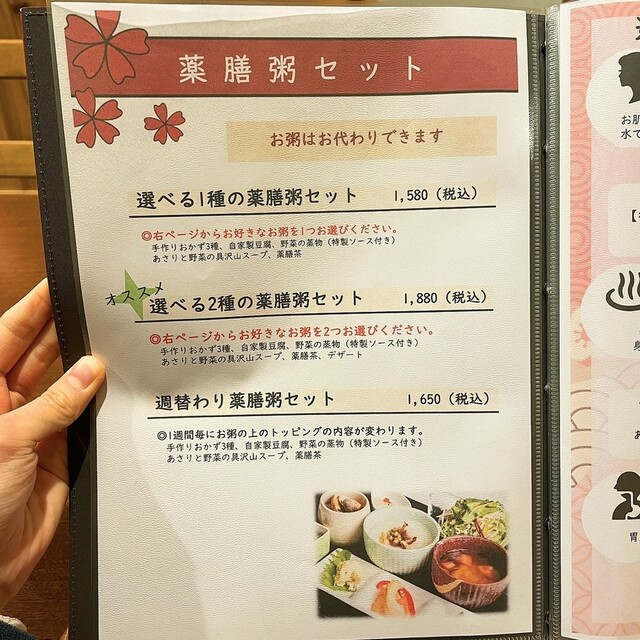 薬膳粥セット
お粥はお代わりできます
選べる1種の薬膳粥セット 1,580（税込）
◎右ページからお好きなお粥を1つお選びください。
手作りおかず3種、自家製豆腐、野菜の蒸物（特製ソース付き）
あさりと野菜の具沢山スープ、薬膳茶
オススメ
選べる2種の薬膳粥セット 1,880（税込）
◎右ページからお好きなお粥を2つお選びください。
手作りおかず3種、自家製豆腐、野菜の蒸物（特製ソース付き）
あさりと野菜の具沢山スープ、薬膳茶、デザート
週替わり薬膳粥セット 1,650（税込）
◎1週間毎にお粥の上のトッピングの内容が変わります。
手作りおかず3種、自家製豆腐、野菜の蒸物（特製ソース付き）
あさりと野菜の具沢山スープ、薬膳茶
お肌
水で